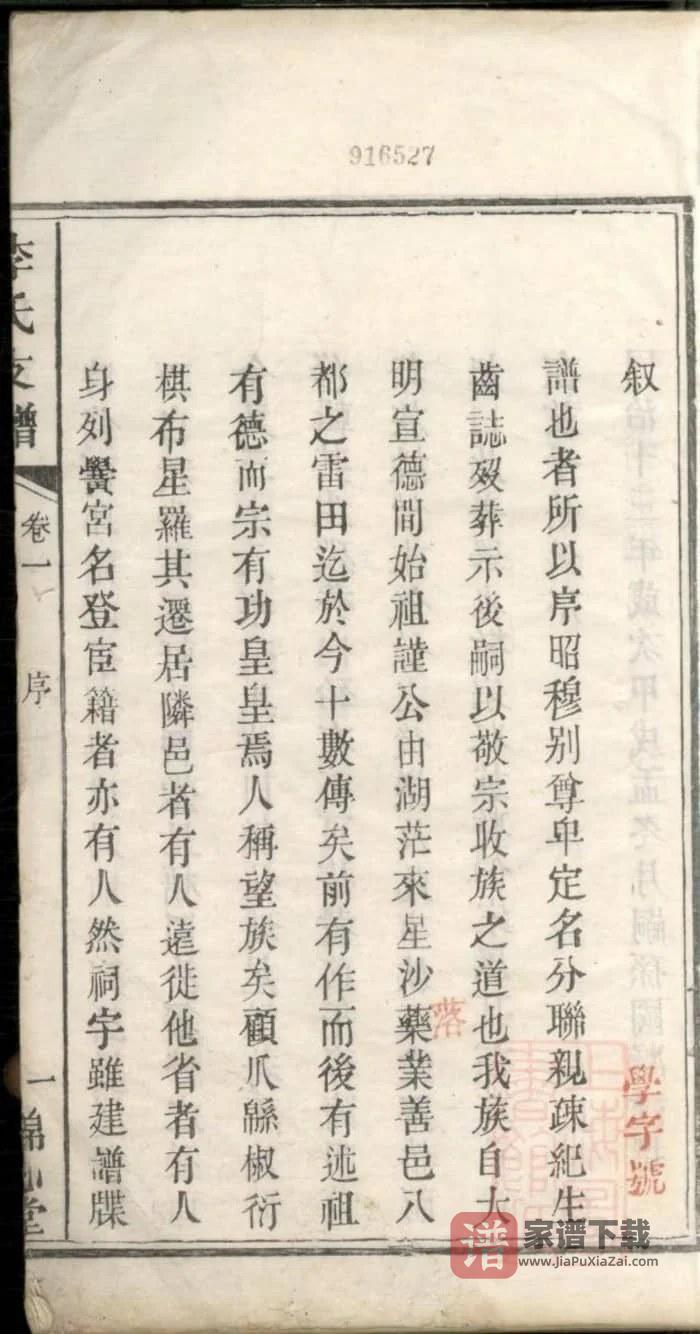 916527
叙
譜也者所以序昭穆别尊卑定名分聯親疎紀生
齒誌歿葬示後嗣以敬宗收族之道也我族自大
明宣德間始祖謹公由湖茫來星沙藥業善邑八
都之雷田迄於今十數傳矣前有作而後有述祖
有德而宗有功皇皇焉人稱望族矣顧瓜緜椒衍
棋布星羅其遷居隣邑者有人遠徙他省者有人
身列黌宮名登宦籍者亦有人然祠宇雖建譜牒
落
學字號
李氏支譜
卷一
序
一
堂
譜
家谱下载
www.JiaPuXiaZai.com